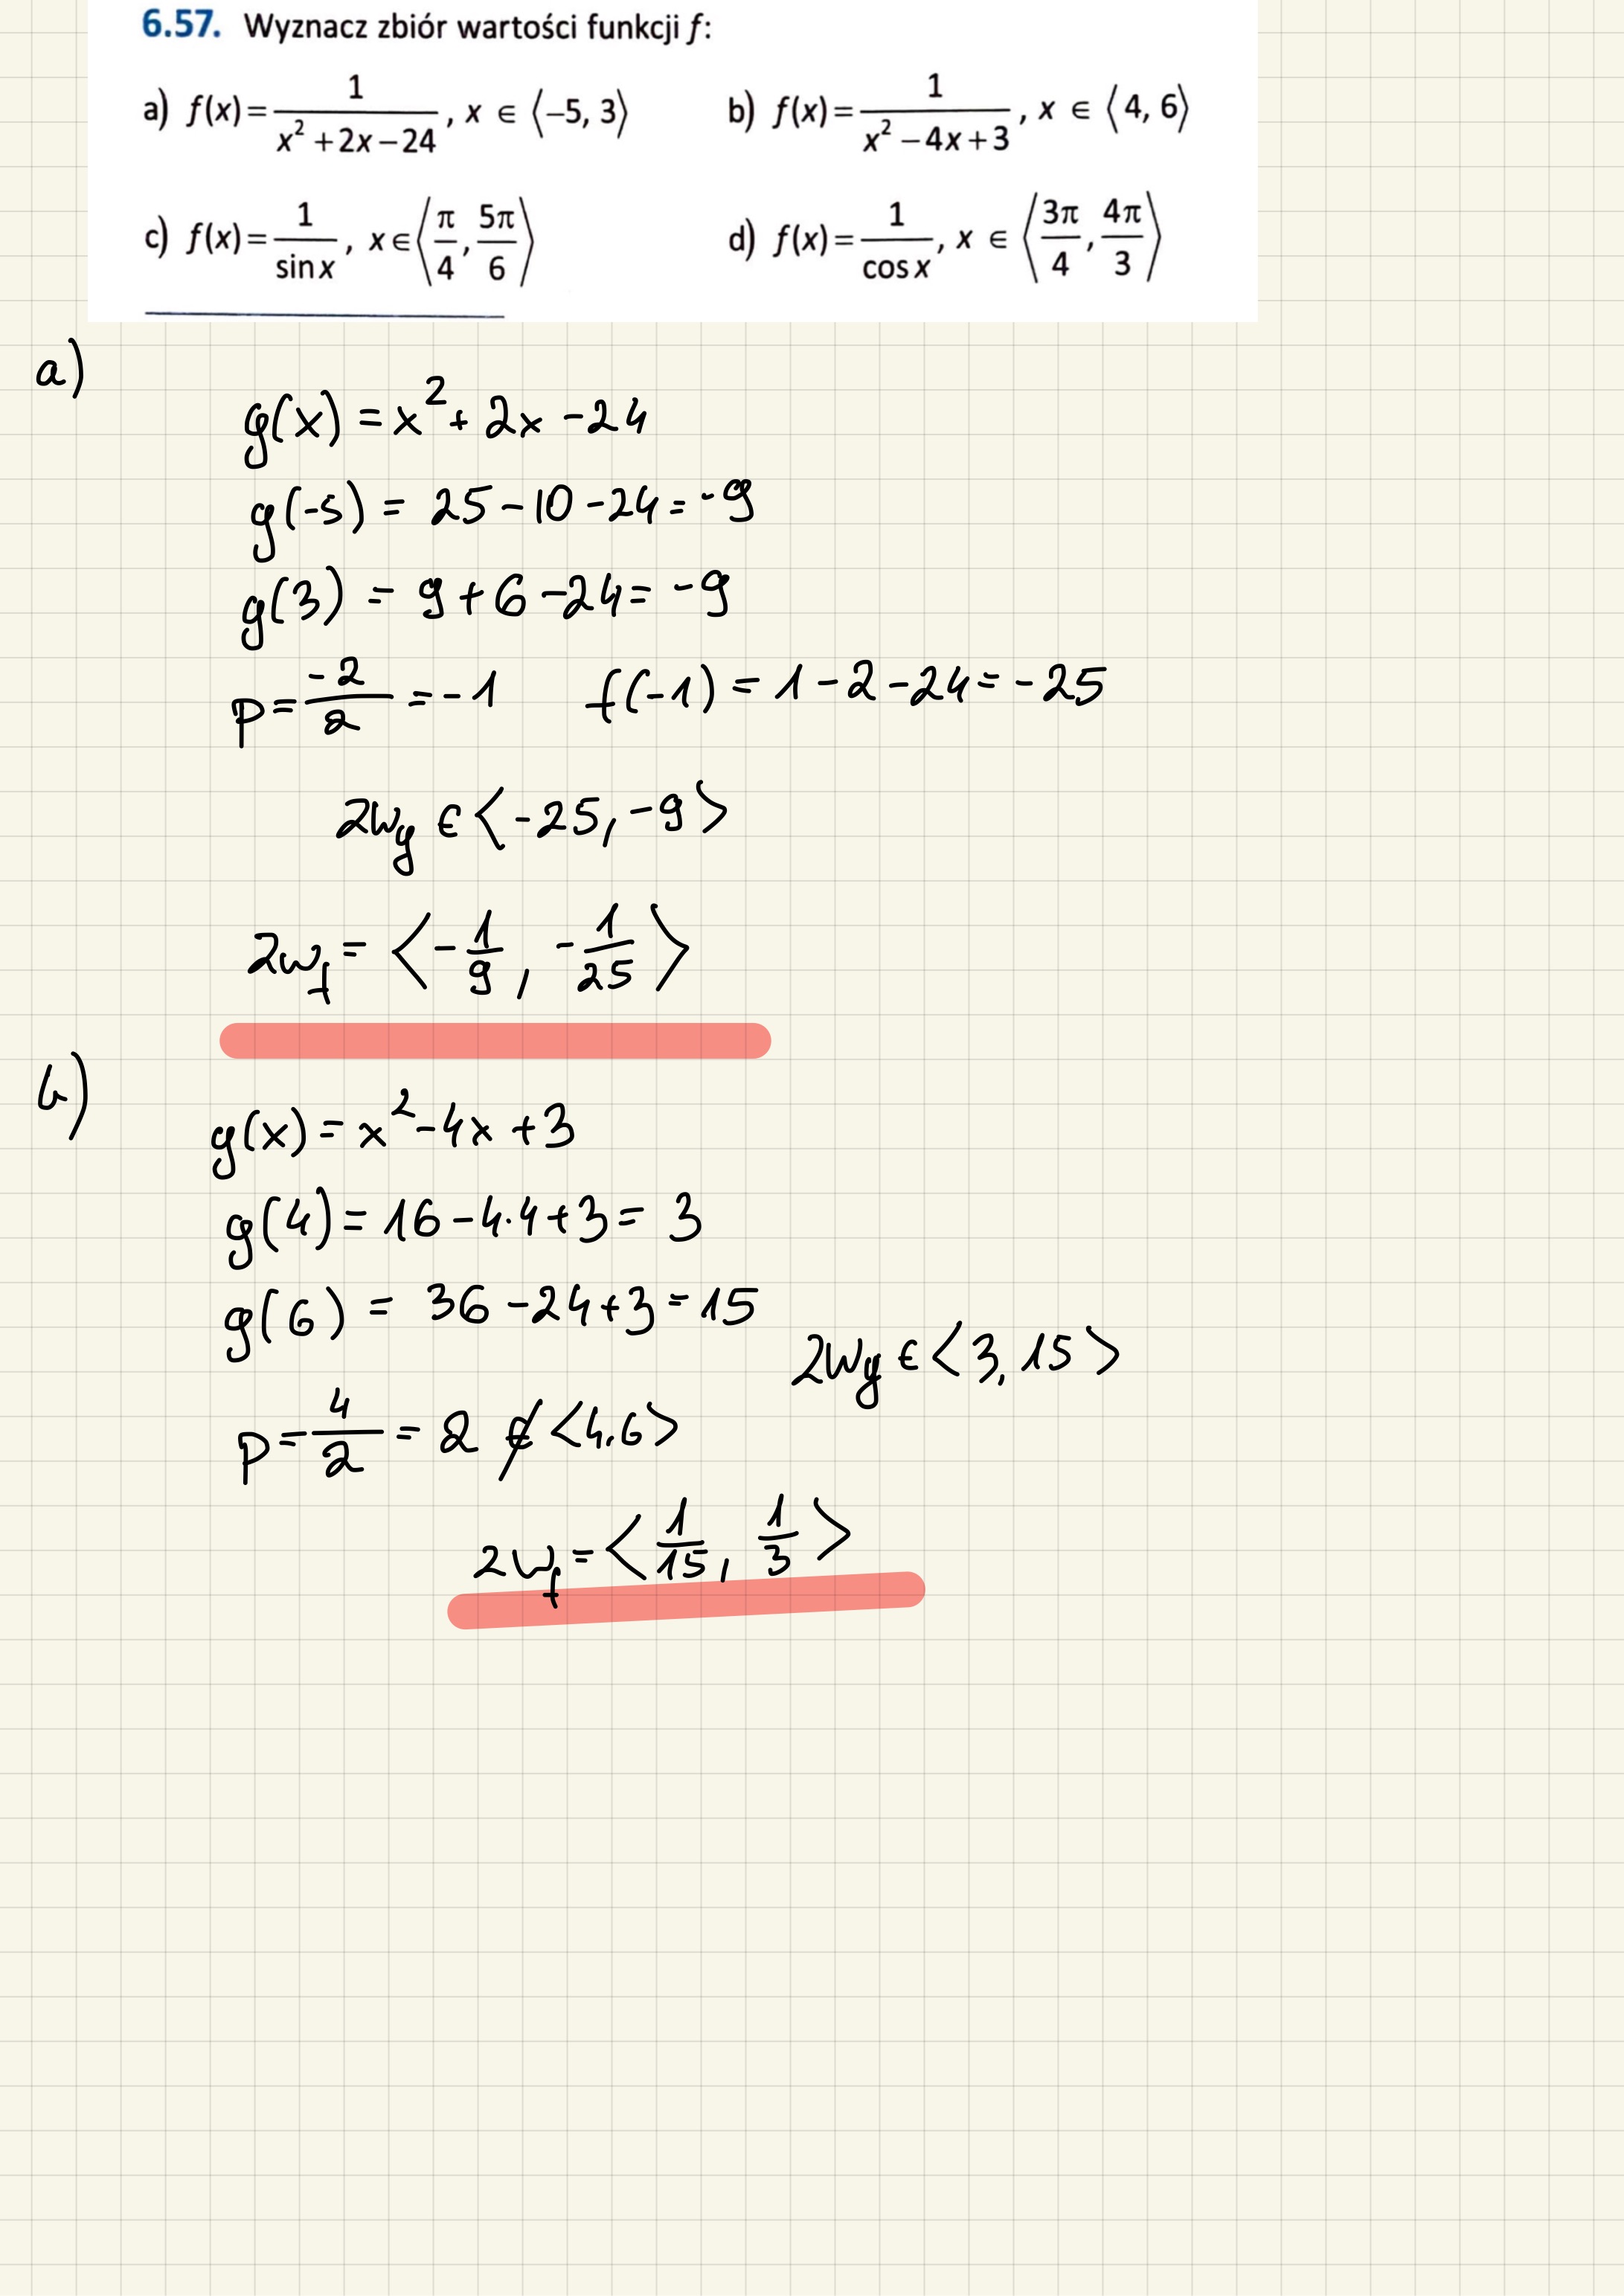 6.57. Wyznacz zbiór wartości funkcji f:
a) f(x)= 1/(x² +2x−24), x ∈ ⟨−5, 3⟩ b) f(x)= 1/(x² −4x+3), x ∈ ⟨4, 6⟩
c) f(x)= 1/(sin x), x∈⟨π/4, 5π/6⟩ d) f(x)= 1/(cos x), x ∈ ⟨3π/4, 4π/3⟩
a)
g(x) = x² + 2x - 24
g(-5) = 25 - 10 - 24 = -9
g(3) = 9 + 6 - 24 = -9
p = -2/2 = -1 f(-1) = 1 - 2 - 24 = -25
ZWg ∈ <-25, -9>
ZWf = <-1/9, -1/25>
b)
g(x) = x² - 4x + 3
g(4) = 16 - 4·4 + 3 = 3
g(6) = 36 - 24 + 3 = 15
ZWg ∈ <3, 15>
p = 4/2 = 2 ∉ <4,6>
ZWf = <1/15, 1/3>